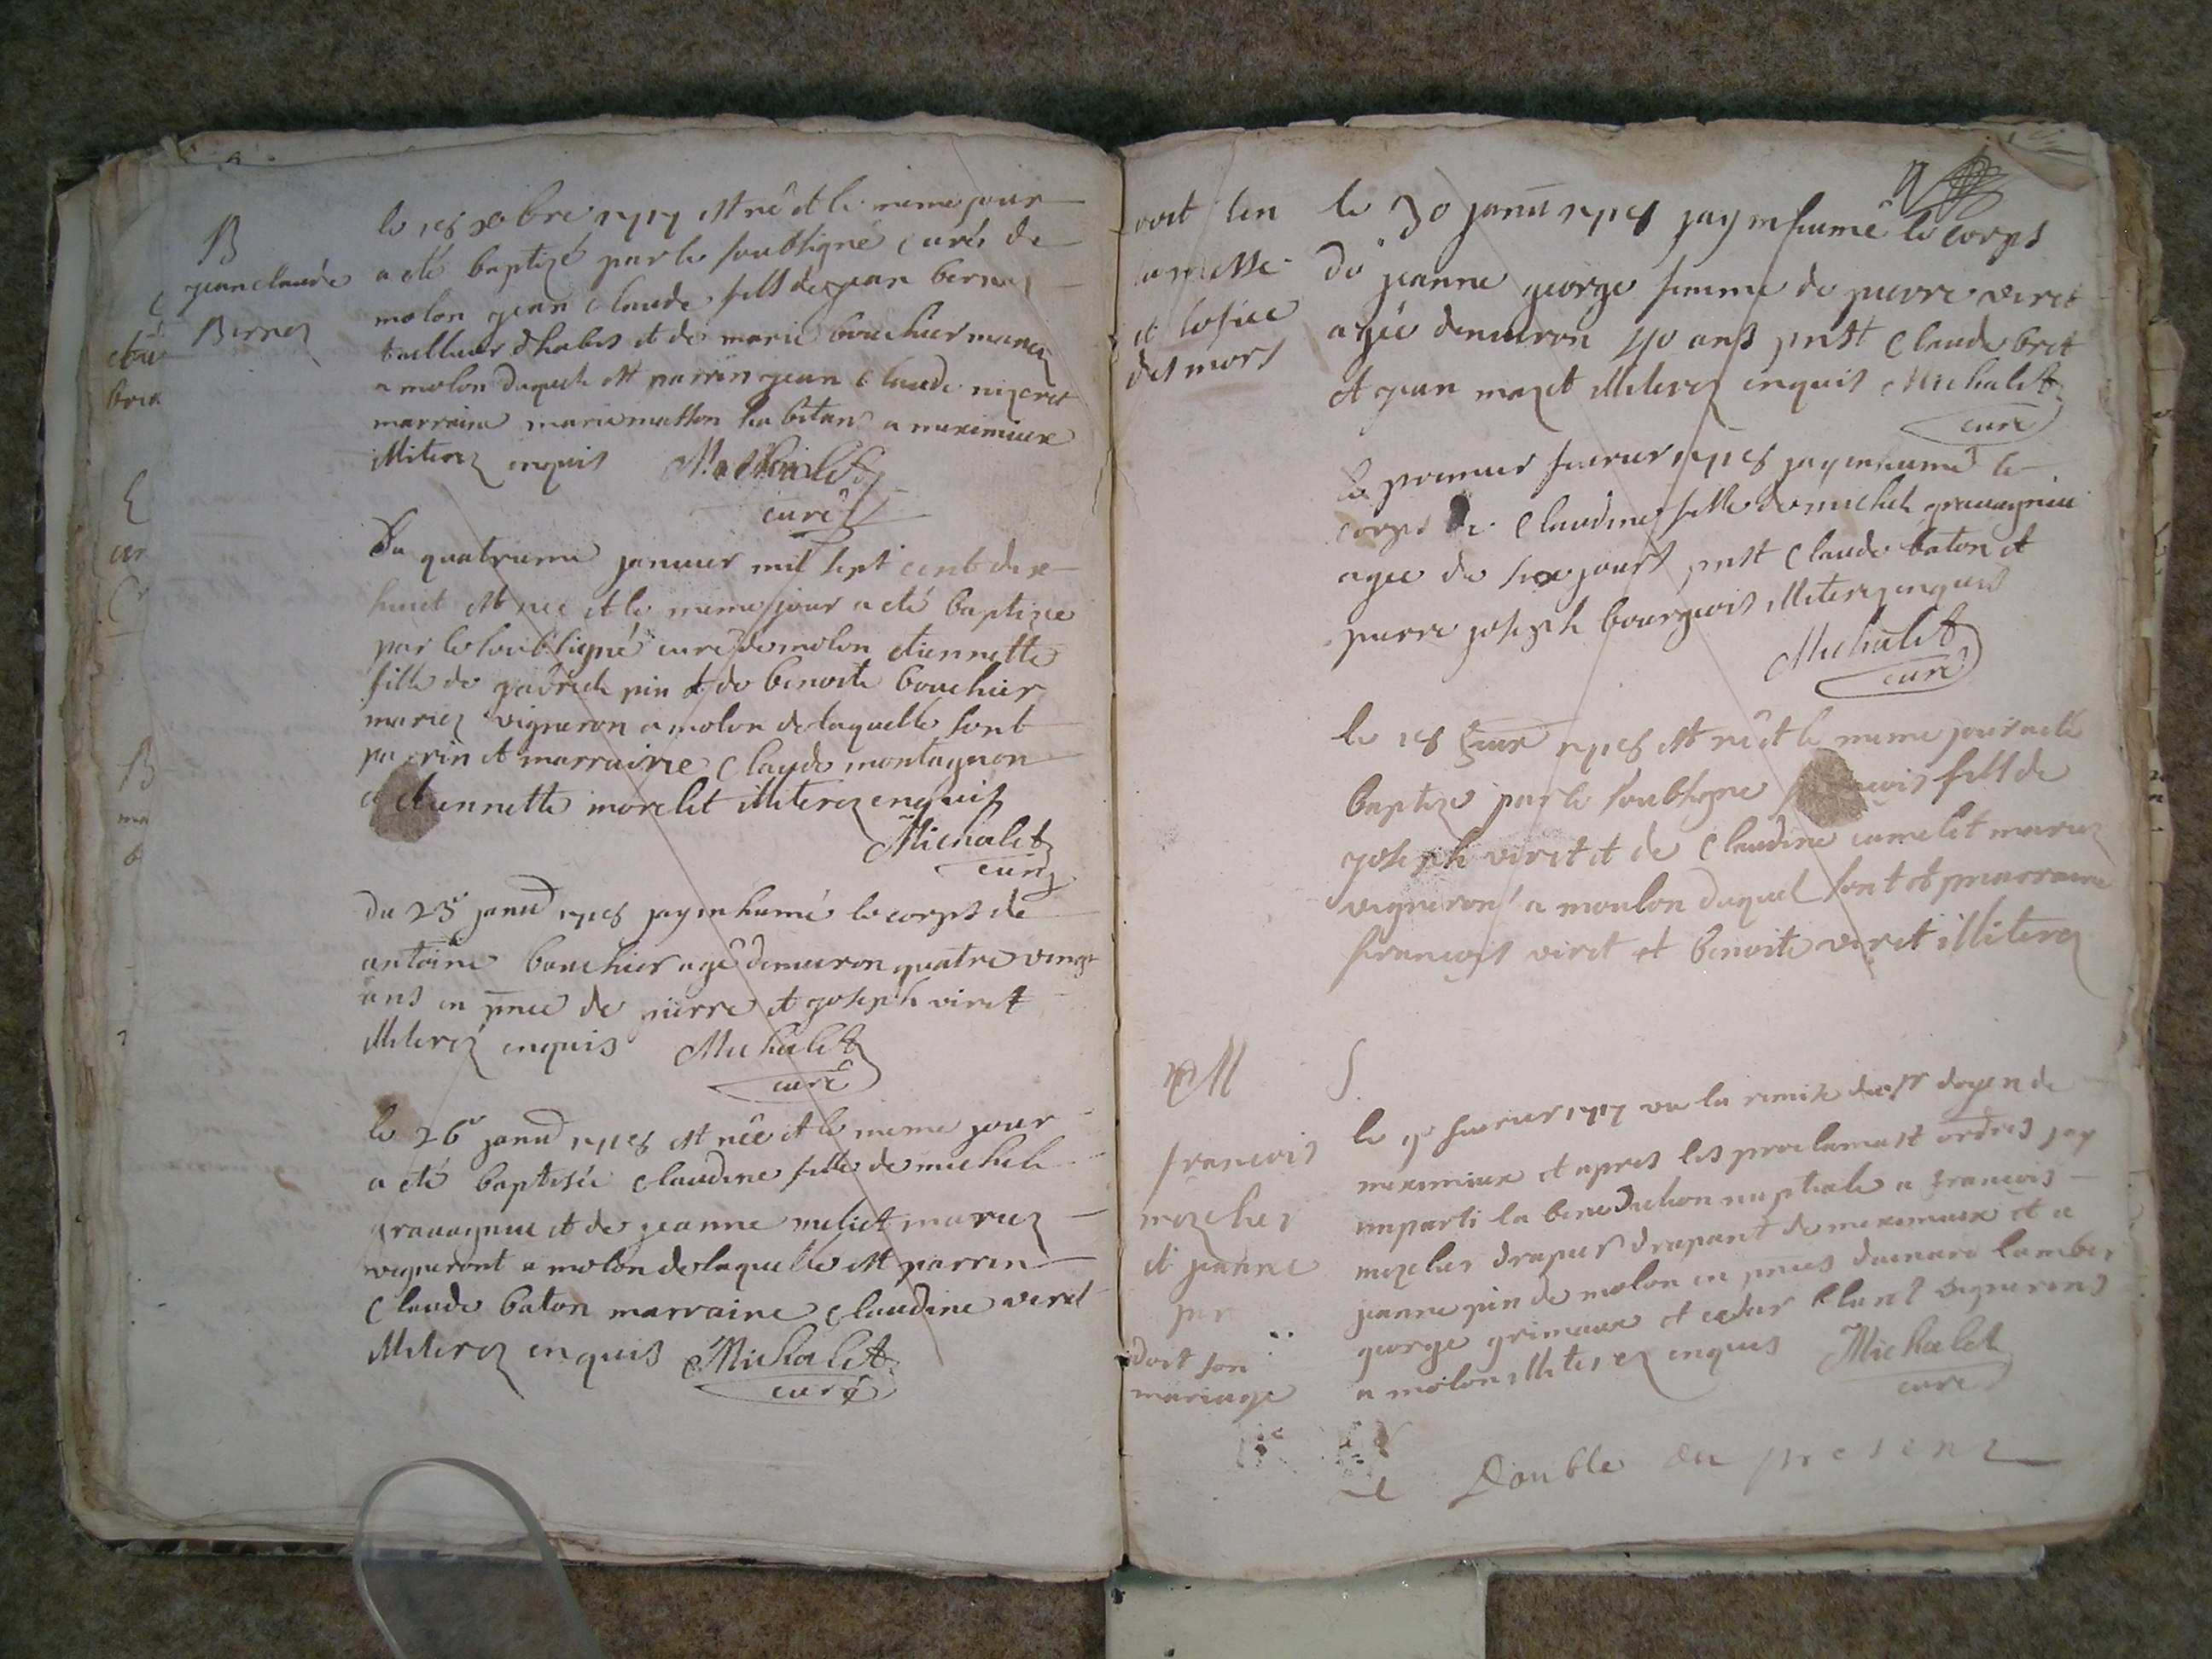 B
jean claude
Bernoz
le 18 xbre 1717 est né et le meme jour
a eté baptizé par le soubsigné curé de
molon jean claude fils de jean bernoz
tailleur dhabis et de marie bouchier mariez
a molon duquel est parrin jean claude
marraine marie masson habitans a meximieux
illiterez enquis Michalet
curé
Du quatrieme janvier mil sept cent dix
huit est nee et le meme jour a eté baptizee
par le soubsigné curé de molon etiennette
fille de gabriel pin et de benoite bouchier
mariez vigneron a molon de laquelle sont
parrin et marraine claude montagnon
et etiennette morelet illiterez enquis
Michalet
curé
du 25 janvr 1718 jay inhumé le corps de
antoine bouchier agé denviron quatre vingt
ans en pnce de pierre et joseph viret
illiterez enquis Michalet
curé
le 26e janvr 1718 est née et le meme jour
a eté baptisée claudine fille de michel
gravagnieu et de jeanne meliet mariez
vigneront a molon de laquelle est parrin
claude baton marraine claudine veret
illiterez enquis Michalet
curé
doit
la messe
et lofice
des mors
le 30 janvr 1718 jay inhumé le corps
de jeanne george femme de pierre veret
agée denviron 40 ans pnst claude bret
et jean mazet illiterez enquis Michalet
curé
le premier fevrier 1718 jay inhumé le
corps de claudine fille de michel gravagnieu
agee de six jours pnst claude baton et
pierre joseph bourgeois illiterez enquis
Michalet
curé
le 18 1718 est né et le meme jour a eté
baptize par le soubsigne francois fils de
joseph viret et de claudine camelet mariez
vignerons a moulon duquel sont et marraine
francois viret et benoite veret illiterez
M
francois
mozelier
et jeanne
pin
doit son
mariage
le fevrier 1717 vu la remise du sr doyen de
meximieux et apres les proclamast ordres jay
imparti la benediction nuptiale a francois
mozelier drapier drapant de meximieux et a
jeanne pin de molon en pnces
george grimaux et vignerons
a molon illiterez enquis Michalet
curé
Double du present